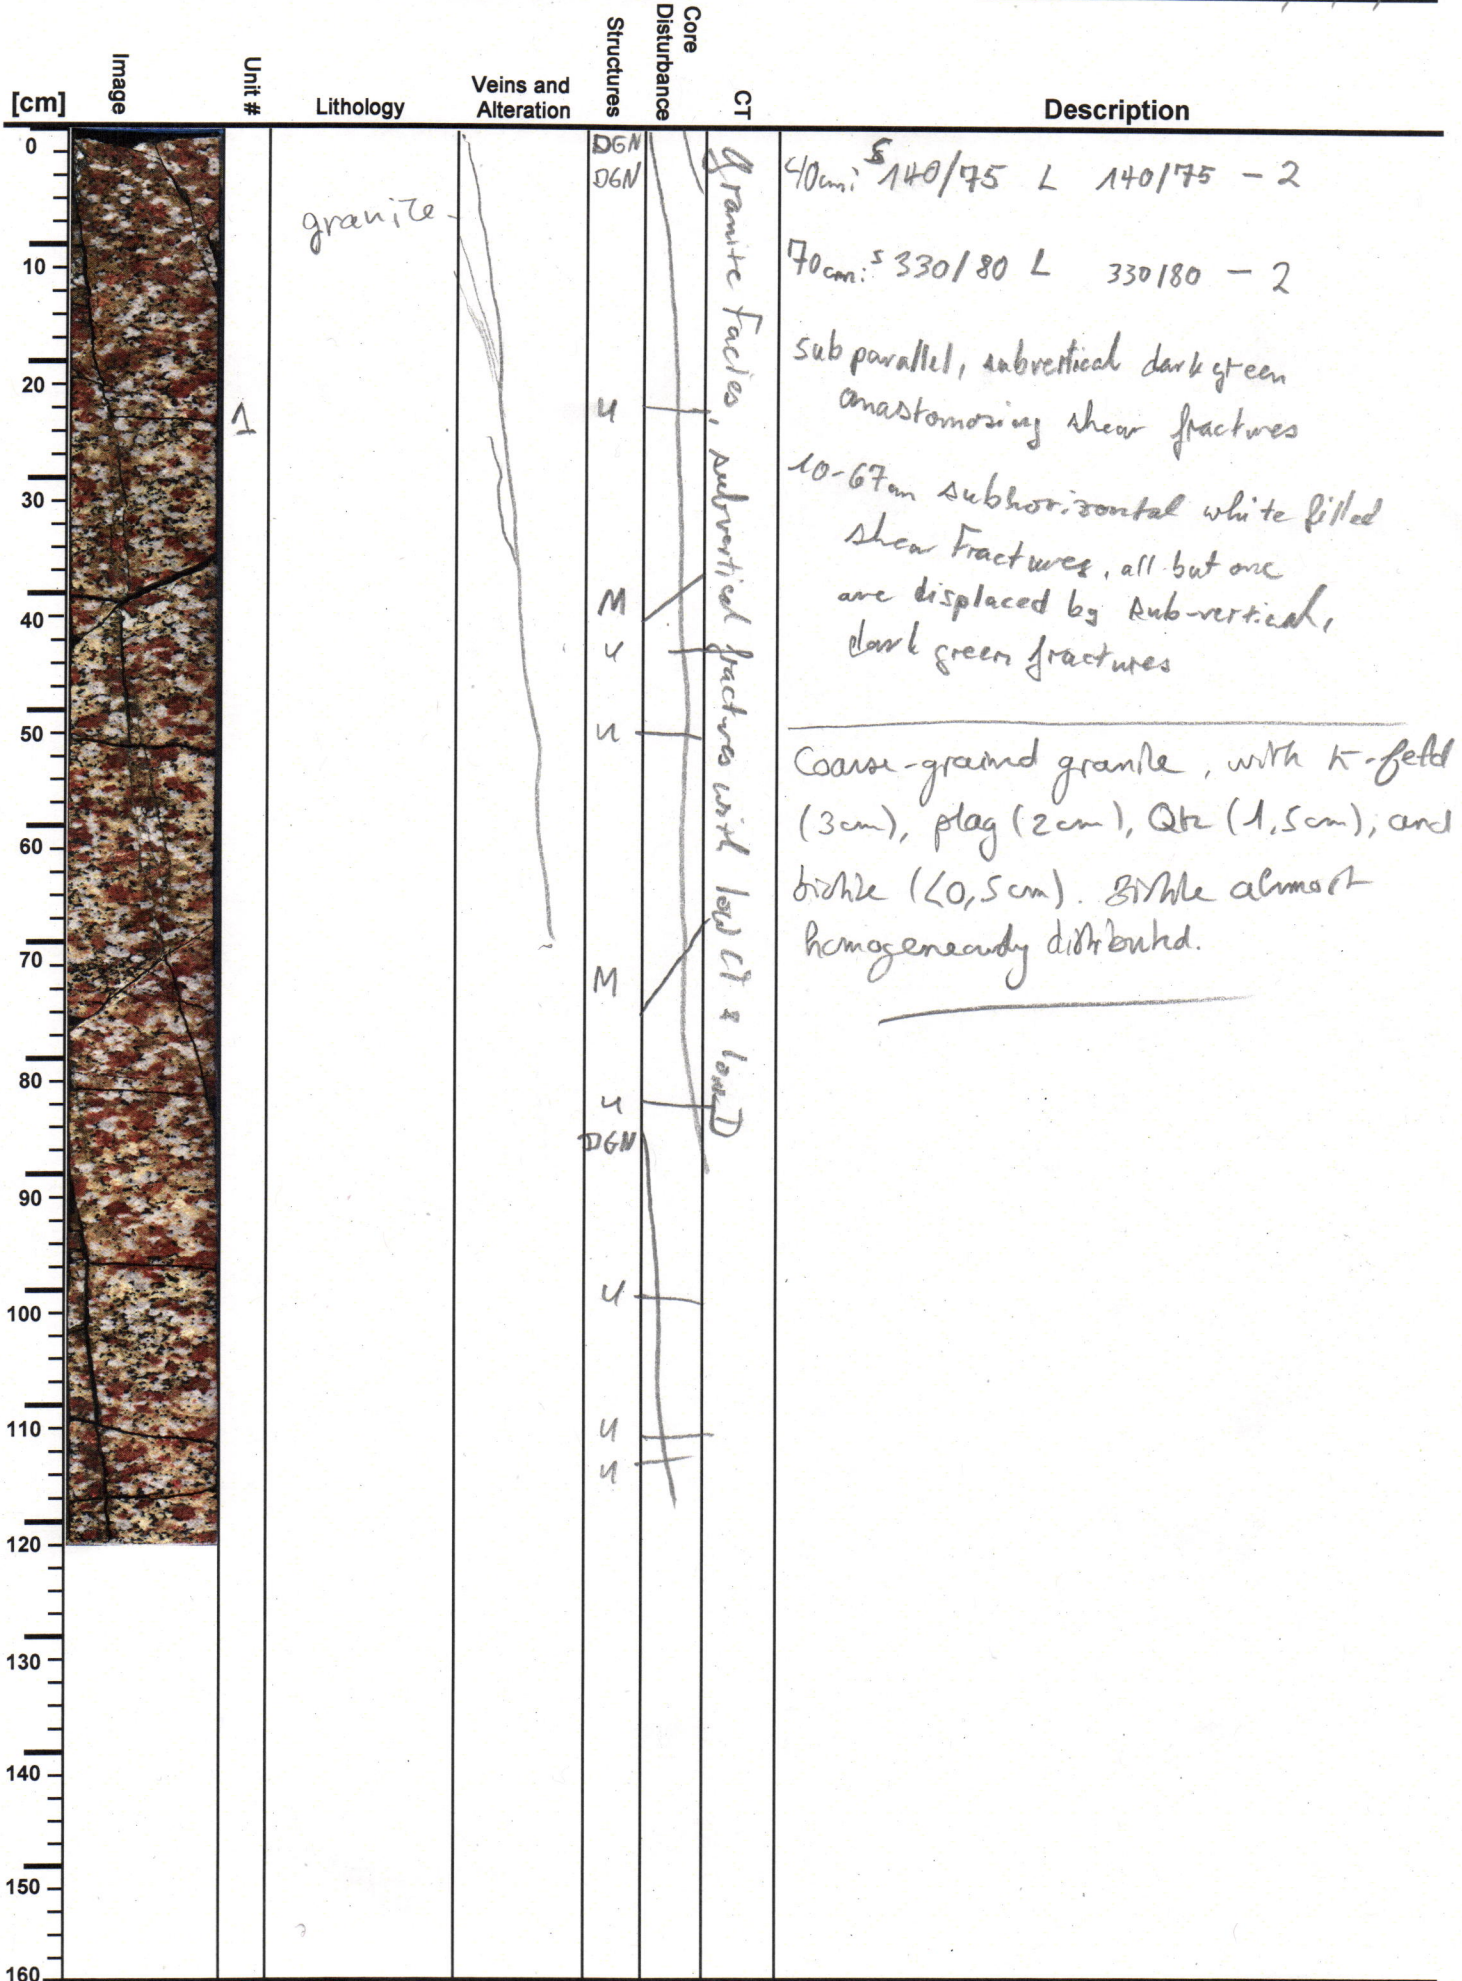 [cm]
Image
Unit #
Lithology
Veins and
Alteration
Structures
Core
Disturbance
CT
Description
0
10
20
30
40
50
60
70
80
90
100
110
120
130
140
150
160
1
granite
DGN
DGN
U
M
U
U
M
U
DGN
U
U
U
Granite Facies, subvertical fractures with low CT & low D
40cm: S 140/75 L 140/75 - 2
70cm: S 330/80 L 330/80 - 2
subparallel, subvertical dark green
anastomosing shear fractures
10-67cm subhorizontal white filled
shear Fractures, all but one
are displaced by sub-vertical,
dark green fractures
Coarse-grained granite, with K-feld
(3cm), plag (2cm), Qtz (1,5cm), and
biotite (<0,5cm). Biotite almost
homogeneously distributed.